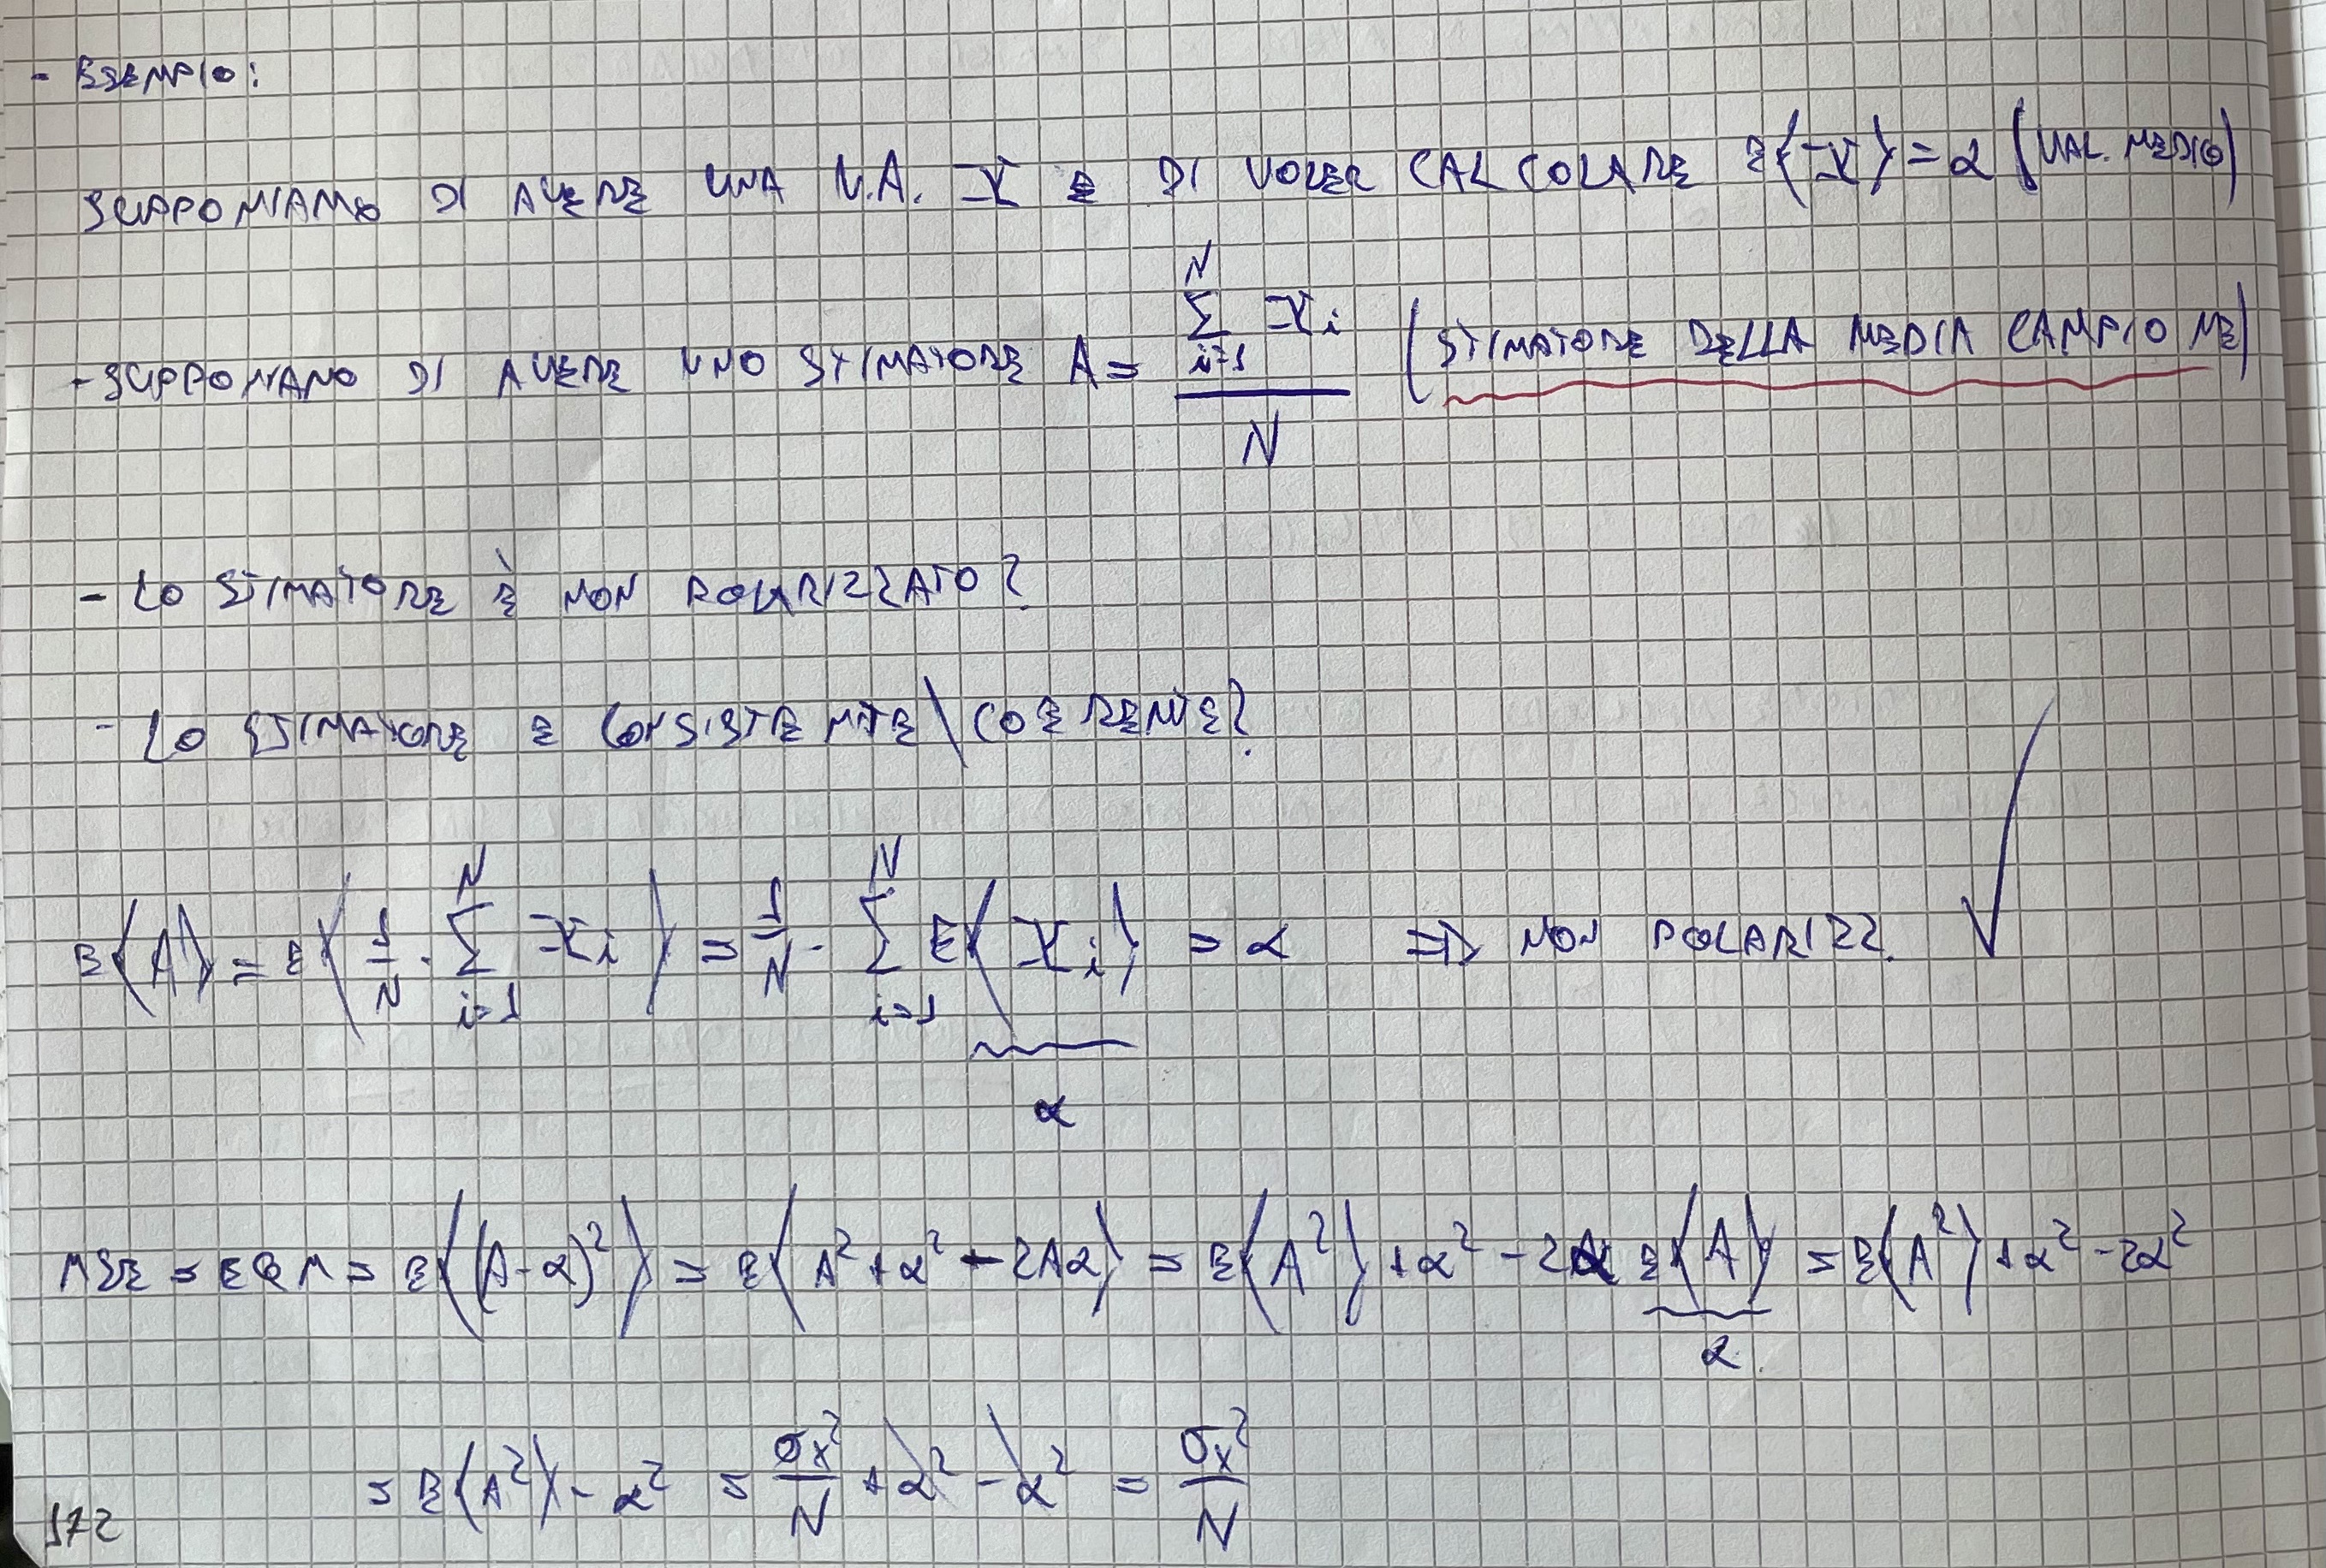 - ESEMPIO:
SUPPONIAMO DI AVERE UNA V.A. X E DI VOLER CALCOLARE E(X) = α (VAL. MEDIO)
- SUPPONIAMO DI AVERE UNO STIMATORE A = \frac{\sum_{i=1}^{N} X_i}{N} (STIMATORE DELLA MEDIA CAMPIONE)
- LO STIMATORE È NON POLARIZZATO?
- LO STIMATORE E CONSISTENTE \ COERENTE?
E(A) = E(\frac{1}{N} · \sum_{i=1}^{N} X_i) = \frac{1}{N} · \sum_{i=1}^{N} E(X_i) = α ⇒ NON POLARIZZ. ✓
α
MSE = EQM = E((A-α)²) = E(A² + α² - 2Aα) = E(A²) + α² - 2α E(A) = E(A²) + α² - 2α²
α
= E(A²) - α² = \frac{σ_X²}{N} + α² - α² = \frac{σ_X²}{N}
172